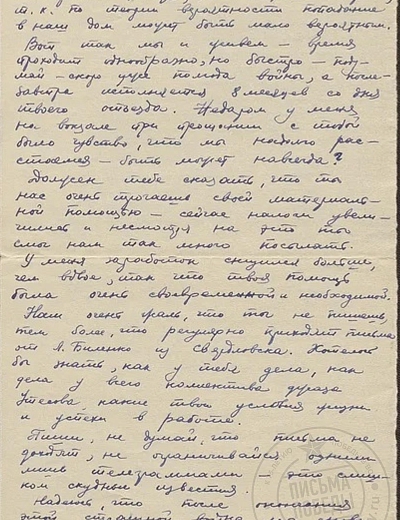 т. к. по теории вероятности попадание
в наш дом может быть мало вероятным.
Вот так мы и живем – время
проходит однообразно, но быстро – поду-
май – скоро уже полгода войны, а после-
завтра исполняется 8 месяцев со дня
твоего отъезда. Недаром у меня
на вокзале при прощании с тобой
было чувство, что мы надолго рас-
стаемся – быть может навсегда?
Должен тебе сказать, что ты
нас очень трогаешь своей материаль-
ной помощью – сейчас налоги увели-
чились и несмотря на это ты
смог нам так много посылать.
У меня заработок снизился больше,
чем вдвое, так что твоя помощь
была очень своевременной и необходимой.
Нам очень жаль, что ты не пишешь,
тем более, что регулярно приходят письма
от Л. Биленко из Свердловска. Хотелось
бы знать, как у тебя дела, как
дела у всего коллектива джаза
Утесова какие твои условия жизни
и успехи в работе.
Пиши, не думай, что письма не
доходят, не ограничивайся одними
лишь телеграммами – это слиш-
ком скудные известия.
Надеюсь, что после окончания
этой страшной войны
ПИСЬМА
ПОБЕДЫ